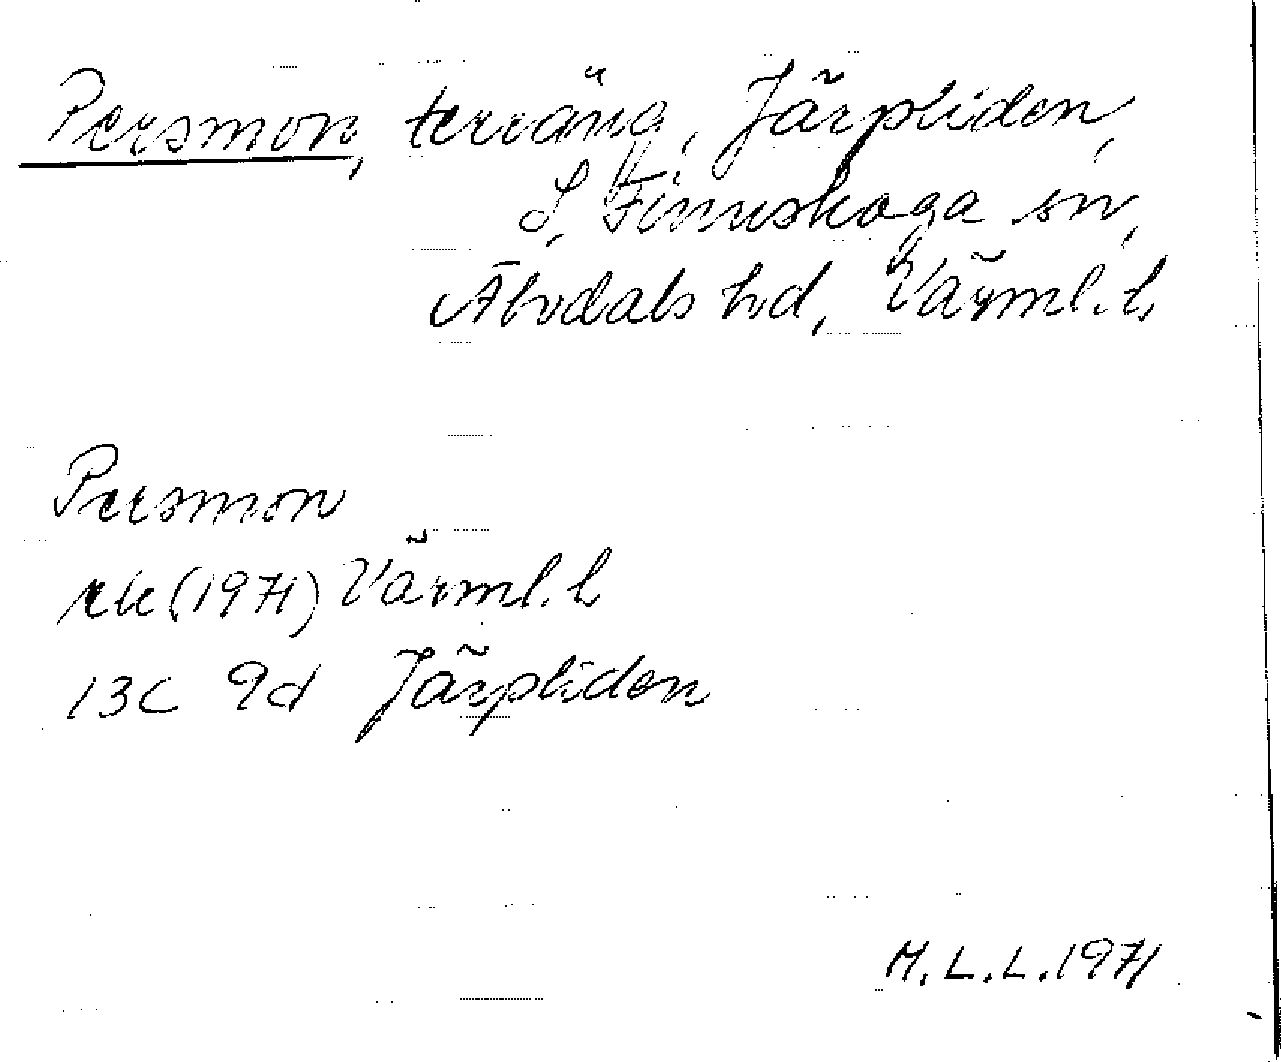 Persmon, terräng, Järpliden,
S. Finnskoga sn,
Älvdals hd, Värml. l.
Persmon
rk (1971) Värml. l
13C 9d Järpliden
M.L.L. 1971